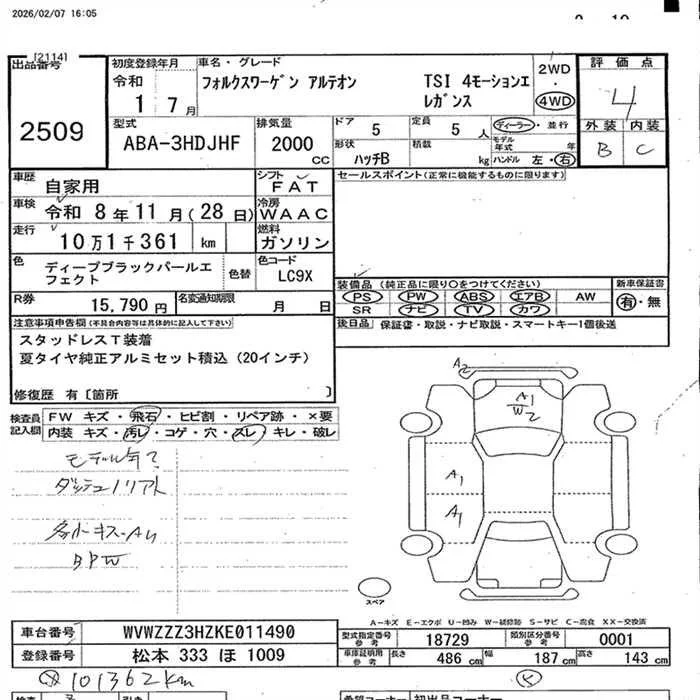 2026/02/07 16:05
[2114]
出品番号
2509
初度登録年月
令和
1 7月
車名・グレード
フォルクスワーゲン アルテオン TSI 4モーションエレガンス
2WD
・
4WD
評価点
4
外装 内装
B C
型式
ABA-3HDJHF
排気量
2000 CC
ドア 5
定員 5 人
ディーラー・並行
形状 ハッチB
積載 kg
モデル年式 年
ハンドル 左・右
車歴 自家用
車検 令和 8年11月(28日)
走行 10万1千361 km
シフト FAT
冷房 WAAC
燃料 ガソリン
色 ディープブラックパールエフェクト
色替
色コード LC9X
R券 15,790 円
名変通知期限 月 日
セールスポイント(正常に機能するものに限ります)
装備品(純正品に限り○をつけてください)
PS PW ABS エアB AW
SR ナビ TV カワ
新車保証書
有・無
後日品 保証書・取説・ナビ取説・スマートキー1個後送
注意事項申告欄(不具合内容等は具体的に記入して下さい)
スタッドレスT装着
夏タイヤ純正アルミセット積込(20インチ)
修復歴 有〔箇所 〕
検査員記入欄
FW キズ・飛石・ヒビ割・リペア跡・×要
内装 キズ・汚レ・コゲ・穴・スレ・キレ・破レ
モデル年?
A2
A1
W2
A1
A1
スペア
A-キズ E-エクボ U-凹み W-補修跡 S-サビ C-腐食 XX-交換済
車台番号 WVWZZZ3HZKE011490
登録番号 松本 333 ほ 1009
型式指定番号 参考 18729
類別区分番号 参考 0001
車庫証明用 参考 長さ 486 cm 幅 187 cm 高さ 143 cm
101362km